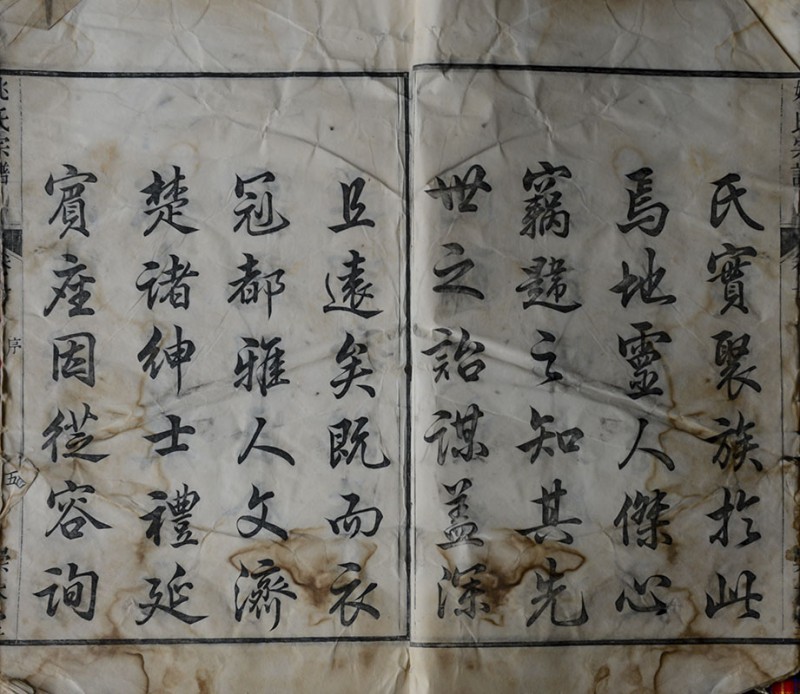 氏實聚族扵此
焉地靈人傑心
竊韙之知其先
世之詒謀盖深
且遠矣既而衣
冠都雅人文濟
楚諸紳士禮延
賔座因從容詢
姚氏宗譜
序
五